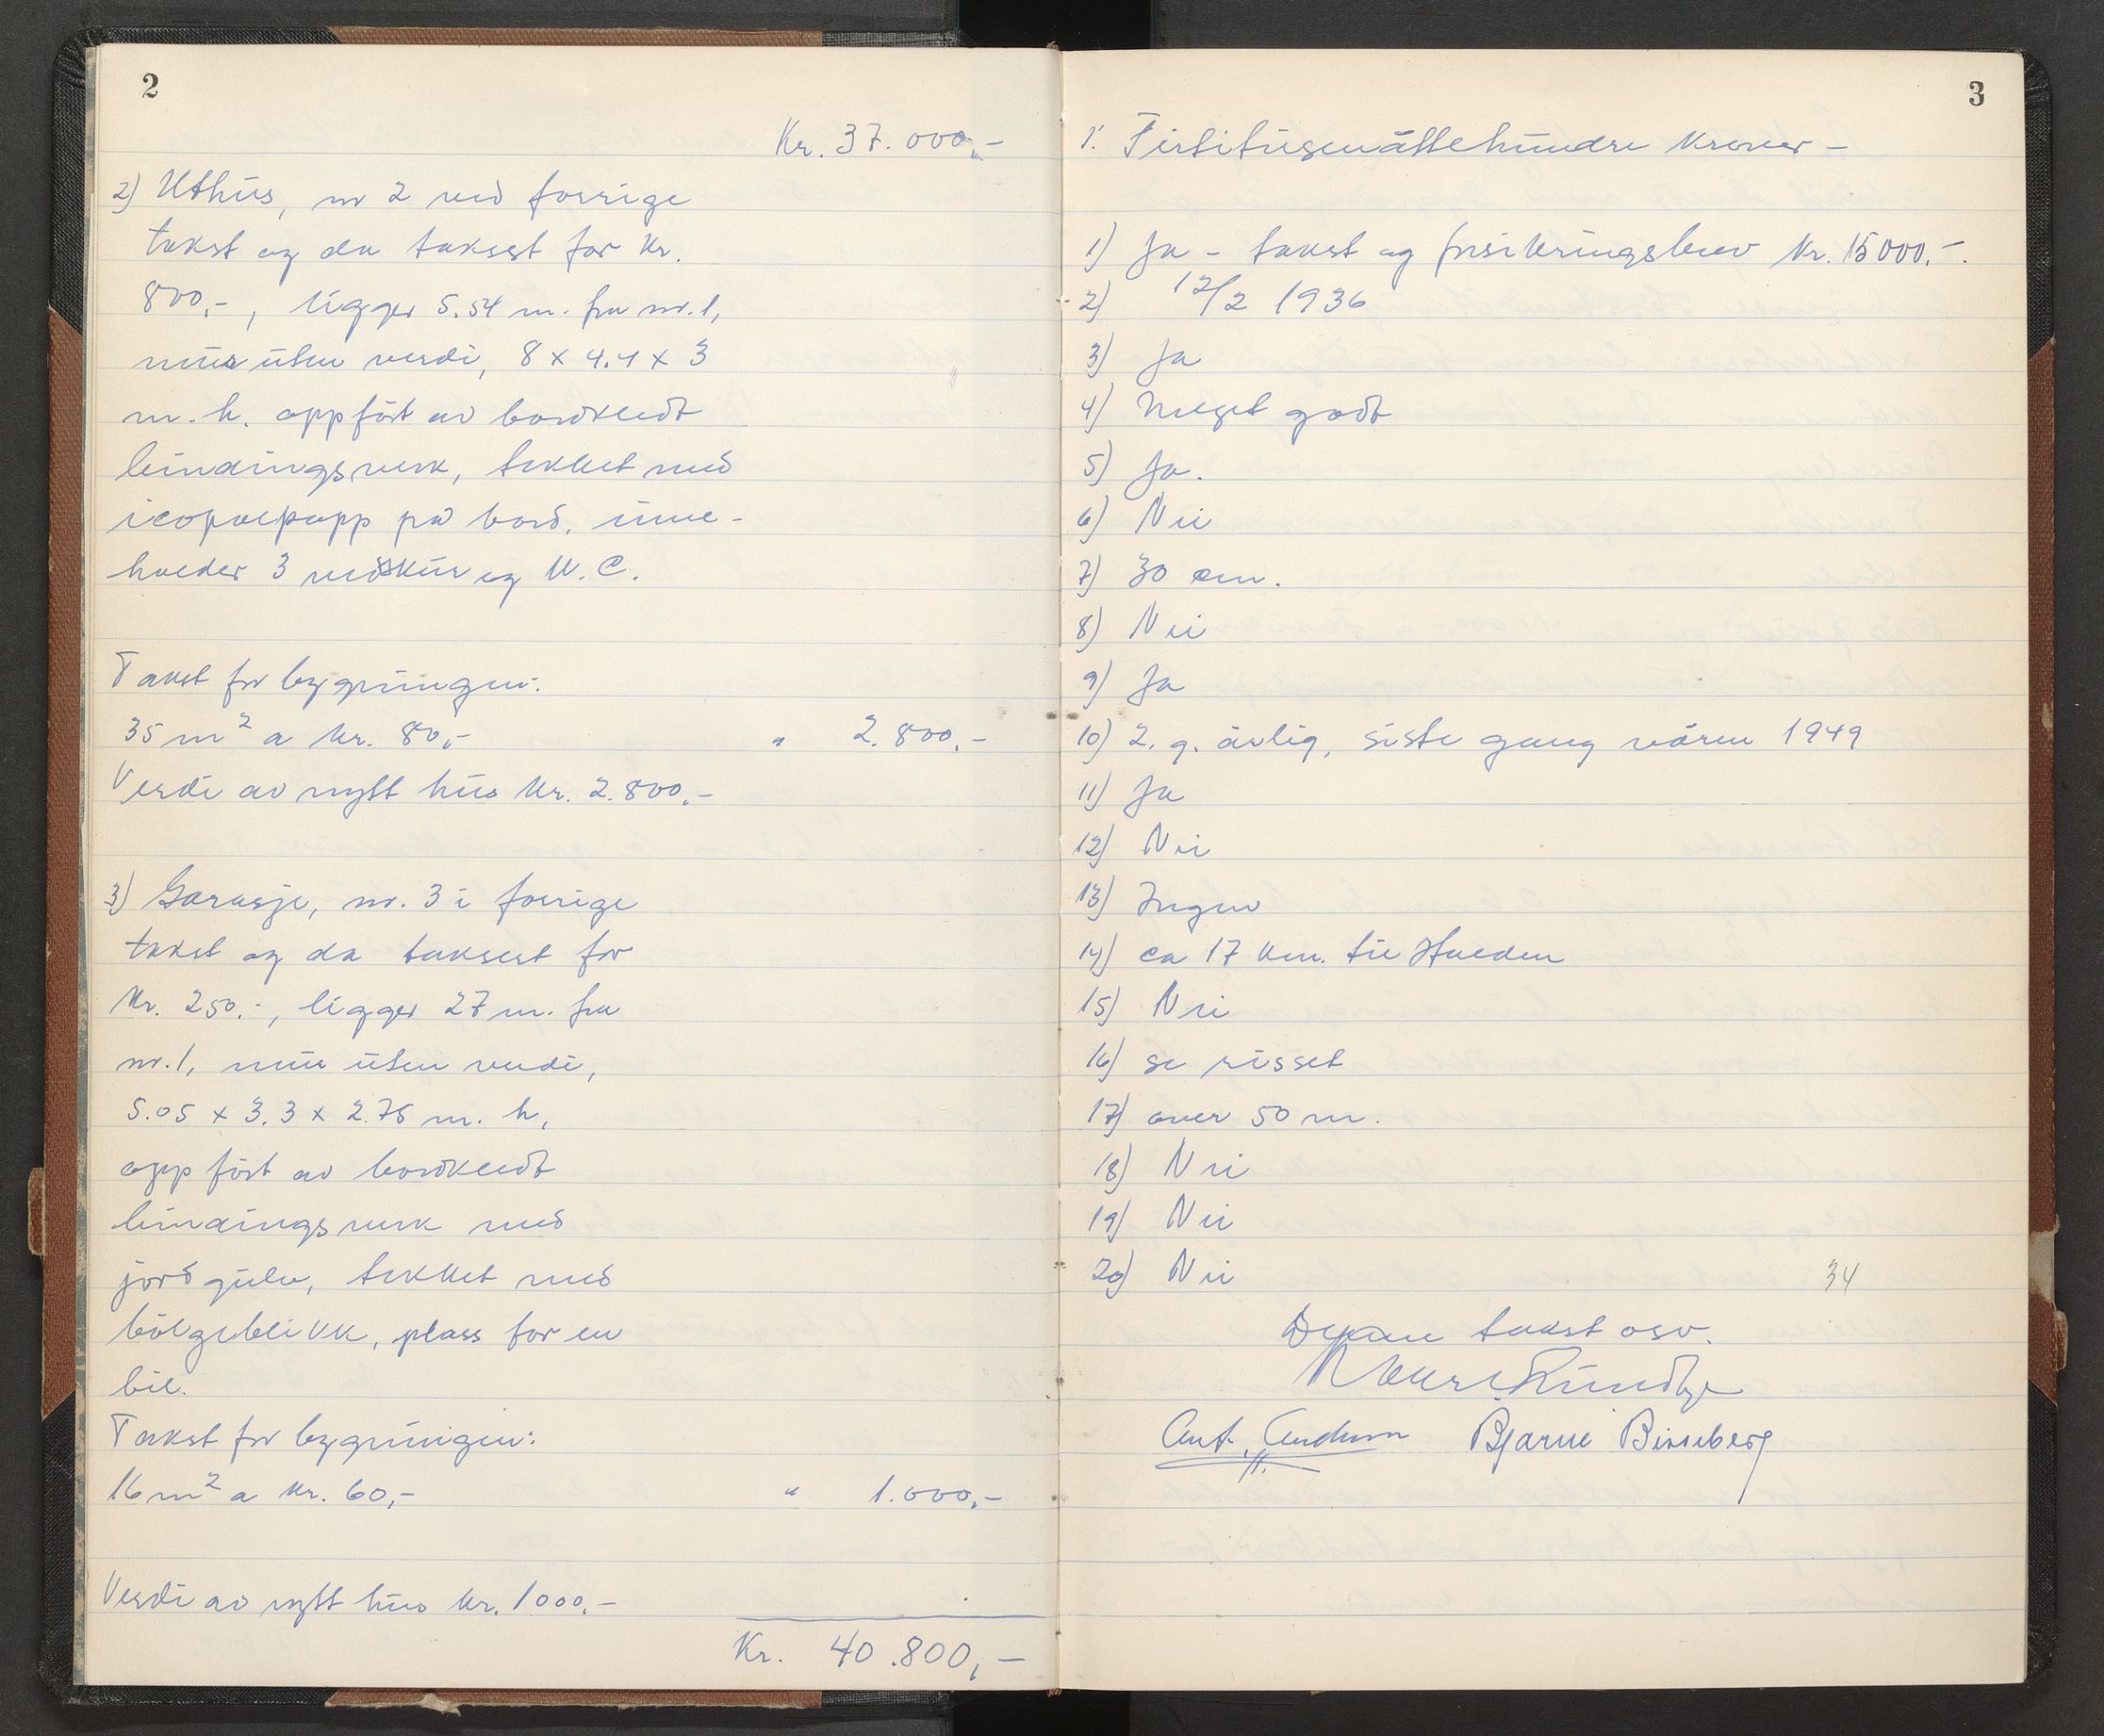 2
Kr. 37.000,-
2) Uthus, nr 2 ved forrige
takst og da taksert for kr.
800,-, ligger 5.54 m. fra nr. 1,
mur uten verdi, 8 x 4.4 x 3
m. h. oppført av bordkledt
bindingsverk, tekket med
icopalpapp på bord, inne-
holder 3 vedskur og W.C.
Takst for bygningen:
35 m² a kr. 80,- " 2.800,-
Verdi av nytt hus kr. 2.800,-
3) Garasje, nr. 3 i forrige
takst og da taksert for
kr. 250.-, ligger 27 m. fra
nr. 1, mur uten verdi,
5.05 x 3.3 x 2.75 m. h,
oppført av bordkledt
bindingsverk med
jordgulv, tekket med
bølgeblikk, plass for en
bil.
Takst for bygningen:
16 m² a kr. 60,- " 1.000,-
Verdi av nytt hus kr. 1000,-
Kr. 40.800,-
3
Firtitusenåttehundre kroner -
1) Ja - takst og forsikringsbrev kr. 15000,-.
2) 12/2 1936
3) Ja
4) Meget godt
5) Ja.
6) Nei
7) 30 cm.
8) Nei
9) Ja
10) 2. g. årlig, siste gang våren 1949
11) Ja
12) Nei
13) Ingen
14) ca 17 km. til Halden
15) Nei
16) se risset
17) over 50 m.
18) Nei
19) Nei
20) Nei
34
Denne takst osv.
Ant. Andersen Bjarne Bisseberg